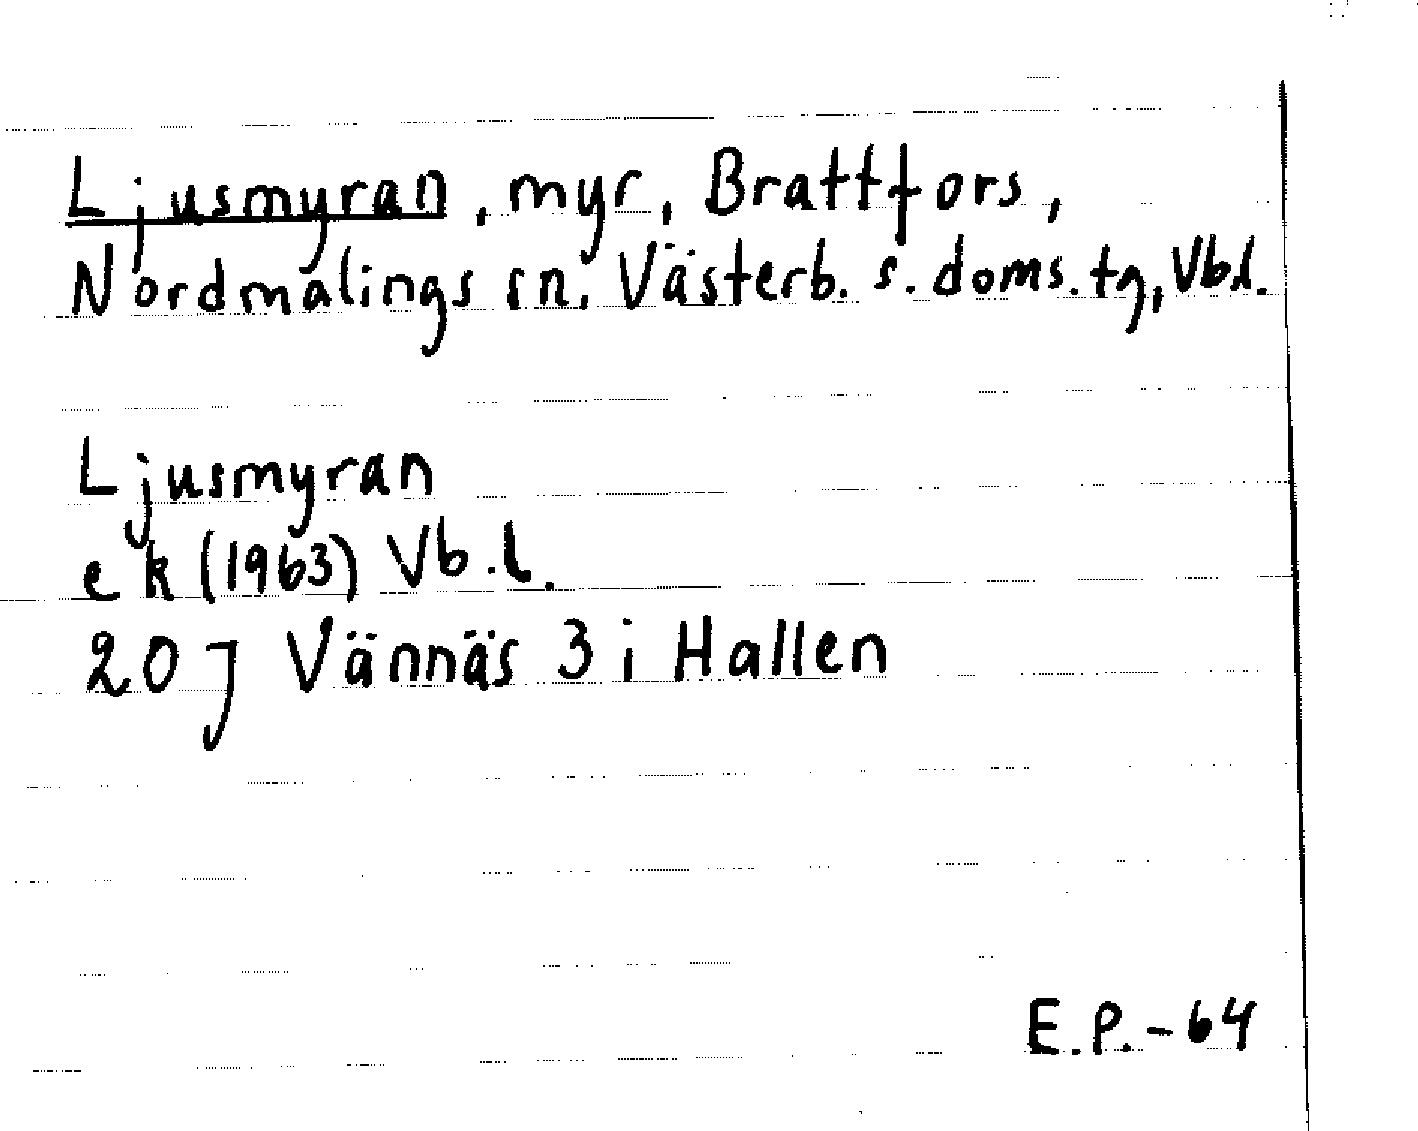 Ljusmyran, myr, Brattfors,
Nordmalings sn. Västerb. s. doms. tg, Vb.l.
Ljusmyran
ek (1963) Vb.l.
20 J Vännäs 3 i Hallen
E.P.-64